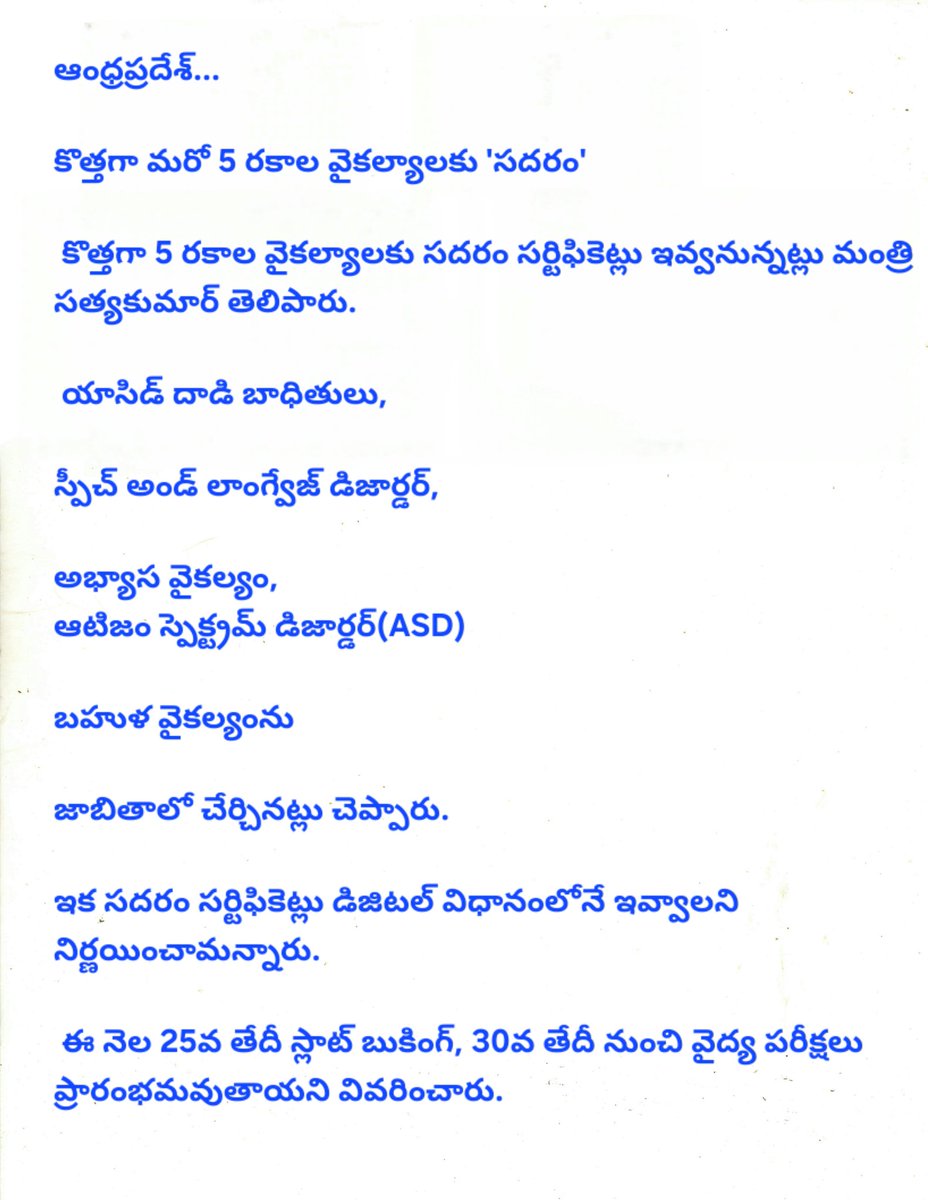 ఆంధ్రప్రదేశ్...
కొత్తగా మరో 5 రకాల వైకల్యాలకు 'సదరం'
కొత్తగా 5 రకాల వైకల్యాలకు సదరం సర్టిఫికెట్లు ఇవ్వనున్నట్లు మంత్రి
సత్యకుమార్ తెలిపారు.
యాసిడ్ దాడి బాధితులు,
స్పీచ్ అండ్ లాంగ్వేజ్ డిజార్డర్,
అభ్యాస వైకల్యం,
ఆటిజం స్పెక్ట్రమ్ డిజార్డర్(ASD)
బహుళ వైకల్యంను
జాబితాలో చేర్చినట్లు చెప్పారు.
ఇక సదరం సర్టిఫికెట్లు డిజిటల్ విధానంలోనే ఇవ్వాలని
నిర్ణయించామన్నారు.
ఈ నెల 25వ తేదీ స్లాట్ బుకింగ్, 30వ తేదీ నుంచి వైద్య పరీక్షలు
ప్రారంభమవుతాయని వివరించారు.